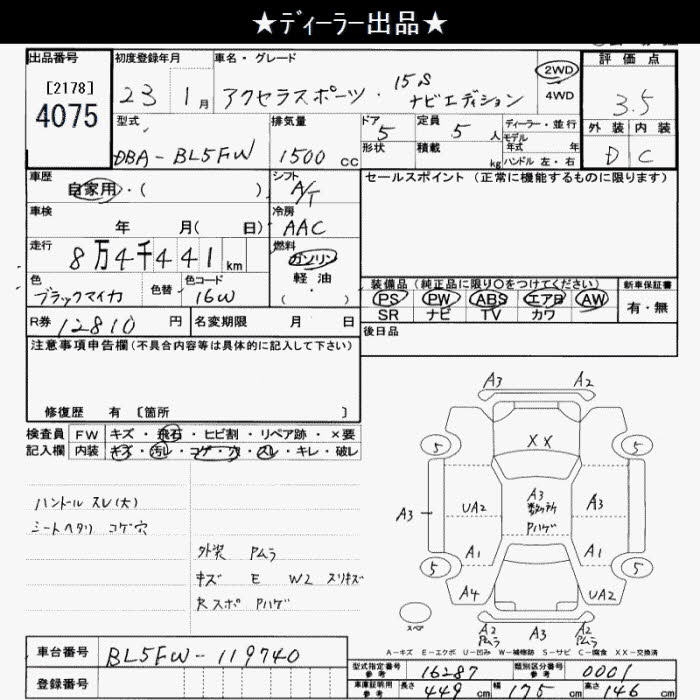 ★ディーラー出品★
出品番号
[2178]
4075
初度登録年月
23 1月
車名・グレード
アクセラスポーツ・15S
ナビエディション
2WD
4WD
評価点
3.5
外装 内装
D C
型式
DBA-BL5FW
排気量
1500 cc
ドア
5
定員
5人
形状
積載
kg
ディーラー・並行
モデル
年式 年
ハンドル 左・右
車歴
自家用・( )
シフト
A/T
セールスポイント (正常に機能するものに限ります)
車検
年 月( 日)
冷房
AAC
走行
8万4千441 km
燃料
ガソリン
軽油
( ・ )
色
ブラックマイカ
色替
色コード
16W
装備品(純正品に限り○をつけてください)
新車保証書
PS PW ABS エアB AW
SR ナビ TV カワ
有・無
R券 12810 円
名変期限 月 日
後日品
注意事項申告欄(不具合内容等は具体的に記入して下さい)
修復歴 有 [箇所 ]
検査員 FW キズ・飛石・ヒビ割・リペア跡・×要
記入欄 内装 キズ・汚レ・コゲ・穴・スレ・キレ・破レ
ハンドル スレ(大)
シートヘタリ コゲ穴
外装 Pムラ
キズ E W2 スリキズ
Rスポ Pハゲ
A3 A2
XX
5 5
UA2 A3 A3
A3
数ヶ所
Pハゲ
A1 A1
5 5
A4 UA2
スペア
A2 A3 A2
Pムラ Pムラ
A-キズ E-エクボ U-凹み W-補修跡 S-サビ C-腐食 XX-交換済
車台番号
BL5FW-119740
登録番号
型式指定番号
参考
16287
類別区分番号
参考
0001
車庫証明用
参考
長さ 449 cm 幅 175 cm 高さ 146 cm